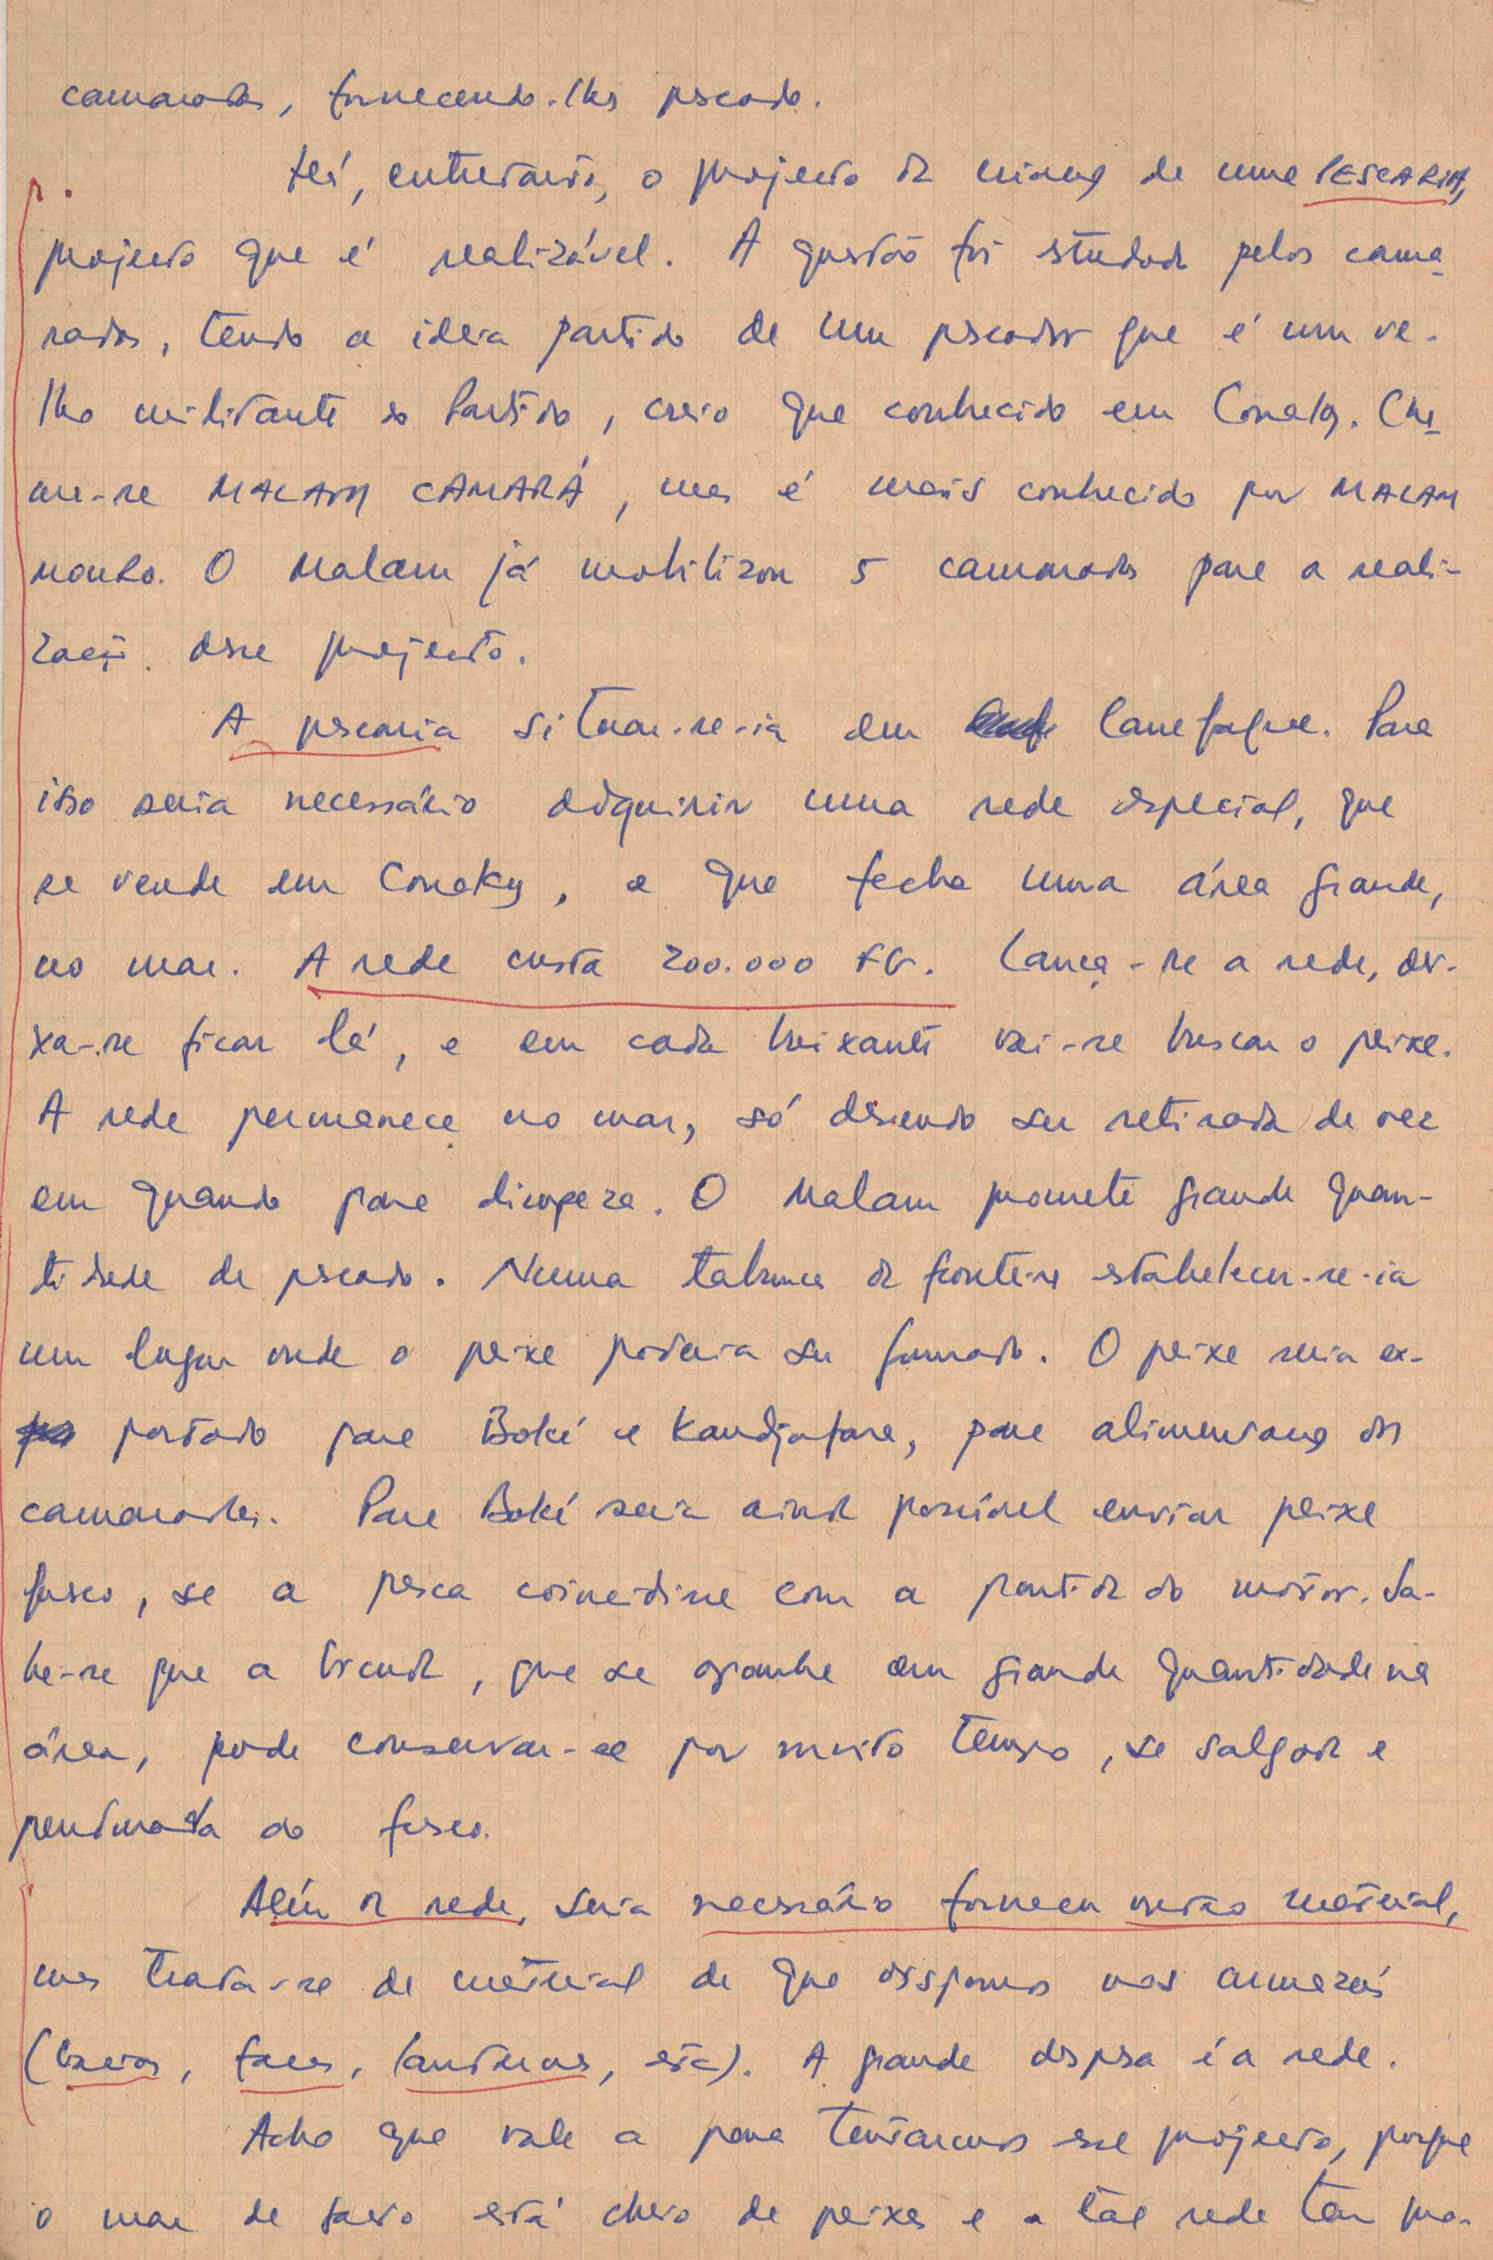 camaradas, fornecendo-lhes pescado.
Há, entretanto, o projecto da criação de uma PESCARIA,
projecto que é realizável. A questão foi estudada pelos cama-
radas, tendo a ideia partido de um pescador que é um ve-
lho militante do Partido, creio que conhecido em Conakry. Cha-
ma-se MALAM CAMARÁ, mas é mais conhecido por MALAM
O Malam já mobilizou 5 camaradas para a reali-
zação desse projecto.
A pescaria situar-se-ia em Canefaque. Para
isso seria necessário adquirir uma rede especial, que
se vende em Conakry, e que fecha uma área grande,
no mar. A rede custa 200.000 FG. Lança-se a rede, dei-
xa-se ficar lá, e em cada baixante vai-se buscar o peixe.
A rede permanece no mar, só devendo ser retirada de vez
em quando para limpeza. O Malam promete grande quan-
tidade de pescado. Numa tabanca da fronteira estabelecer-se-ia
um lugar onde o peixe poderia ser fumado. O peixe seria ex-
portado para Boké e Kandjafara, para alimentação dos
camaradas. Para Boké seria ainda possível enviar peixe
fresco, se a pesca coincidisse com a partida do motor. Sa-
be-se que a bicuda, que se apanha em grande quantidade na
área, pode conservar-se por muito tempo, se salgada e
pendurada ao fresco.
Além da rede, seria necessário fornecer outro material,
mas trata-se de material de que dispomos nos armazéns
(facas, lanternas, etc). A grande despesa é a rede.
Acho que vale a pena tentarmos esse projecto, porque
o mar de facto está cheio de peixes e a tal rede tem pro-